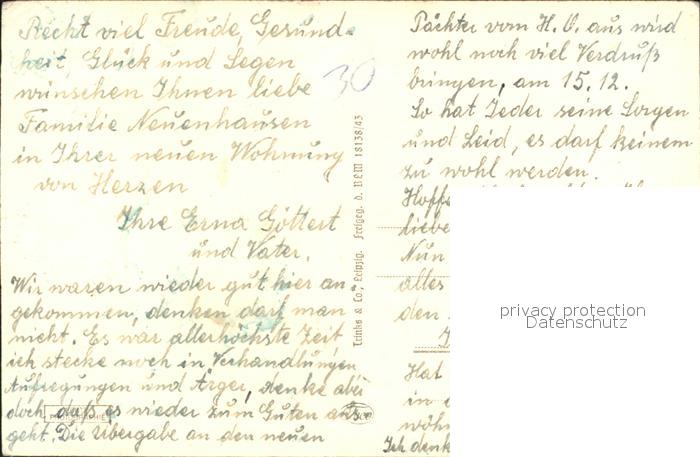 Recht viel Freude, Gesund-
heit, Glück und Segen
wünschen Ihnen liebe
Familie Neuenhausen
in Ihrer neuen Wohnung
von Herzen
Ihre Erna Göttert
und Vater.
Wir waren wieder gut hier an-
gekommen, denken darf man
nicht. Es war allerhöchste Zeit
ich stecke noch in Verhandlungen
Aufregungen und Ärger, denke aber
doch, daß es wieder zum Guten aus-
geht. Die Übergabe an den neuen
30
Trinks & Co., Leipzig. Freigeg. d. RLM 18138/43
Pächter vom H. O. aus wird
wohl noch viel Verdruß
bringen, am 15.12.
So hat Jeder seine Sorgen
und Leid, es darf keinem
zu wohl werden.
Hoffe
liebe
Nun
alles
den
Hat
in
wöhn
Ich denk
privacy protection
Datenschutz